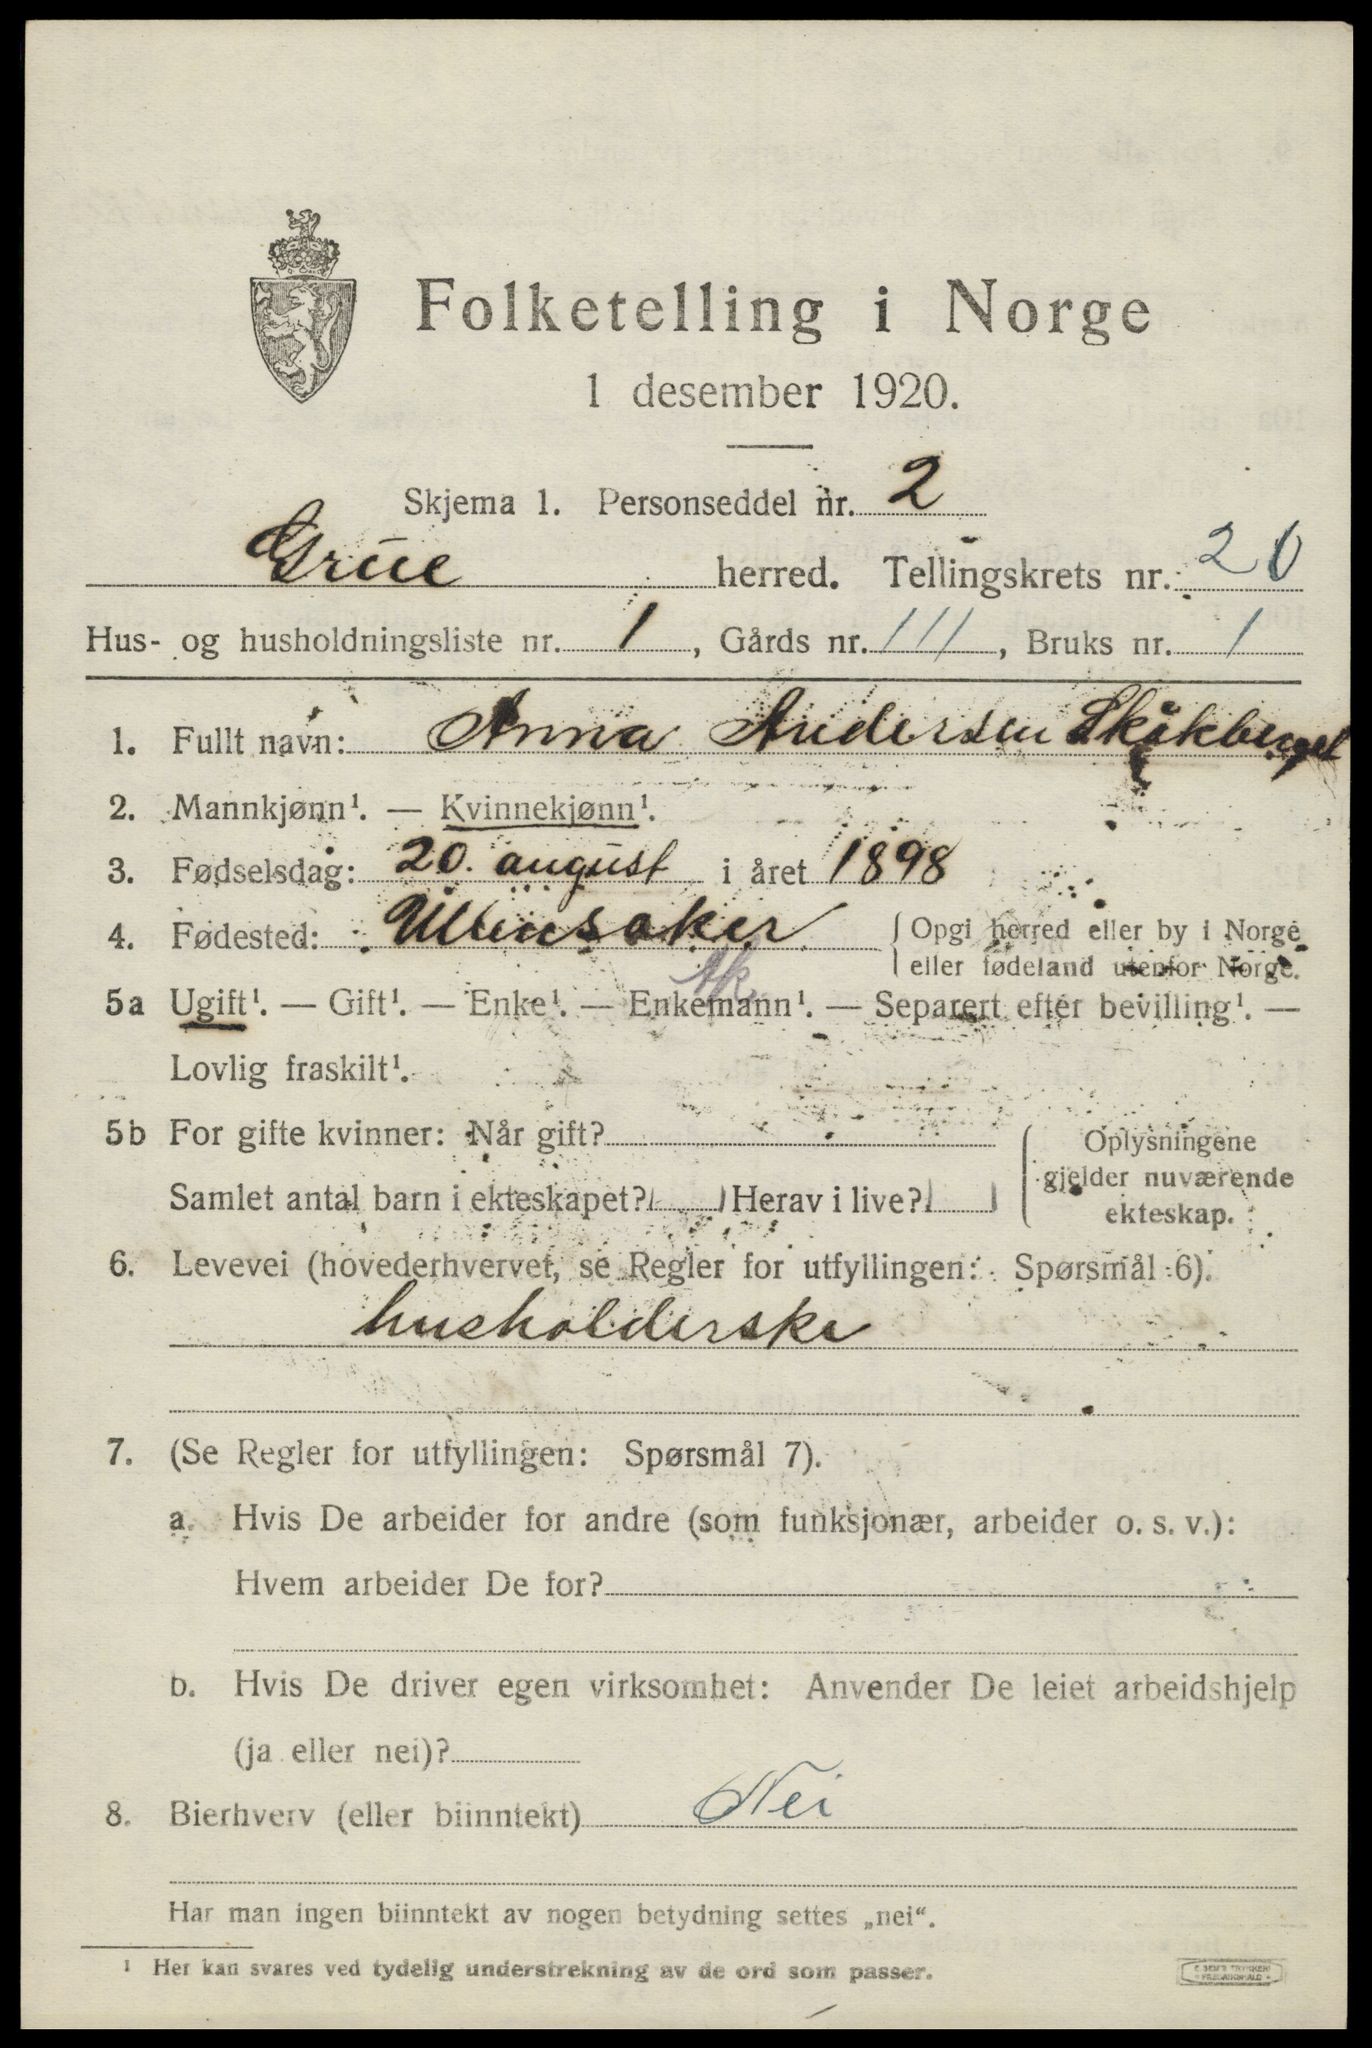 Folketelling i Norge
1 desember 1920.
Skjema 1. Personseddel nr. 2
Grue herred. Tellingskrets nr. 20
Hus- og husholdningsliste nr. 1, Gårds nr. 111, Bruks nr. 1
1. Fullt navn: Anna Andersen Skåkberget
2. Mannkjønn¹. — Kvinnekjønn¹.
3. Fødselsdag: 20. august i året 1898
4. Fødested: Ullensaker { Opgi herred eller by i Norge
eller fødeland utenfor Norge.
Ak.
5a Ugift¹. — Gift¹. — Enke¹. — Enkemann¹. — Separert efter bevilling¹. —
Lovlig fraskilt¹.
5b For gifte kvinner: Når gift? { Oplysningene
gjelder nuværende
Samlet antal barn i ekteskapet? Herav i live?
ekteskap.
6. Levevei (hovederhvervet, se Regler for utfyllingen: Spørsmål 6).
husholderske
7. (Se Regler for utfyllingen: Spørsmål 7).
a. Hvis De arbeider for andre (som funksjonær, arbeider o. s. v.):
Hvem arbeider De for?
b. Hvis De driver egen virksomhet: Anvender De leiet arbeidshjelp
(ja eller nei)?
8. Bierhverv (eller biinntekt) Nei
Har man ingen biinntekt av nogen betydning settes „nei“.
¹ Her kan svares ved tydelig understrekning av de ord som passer.